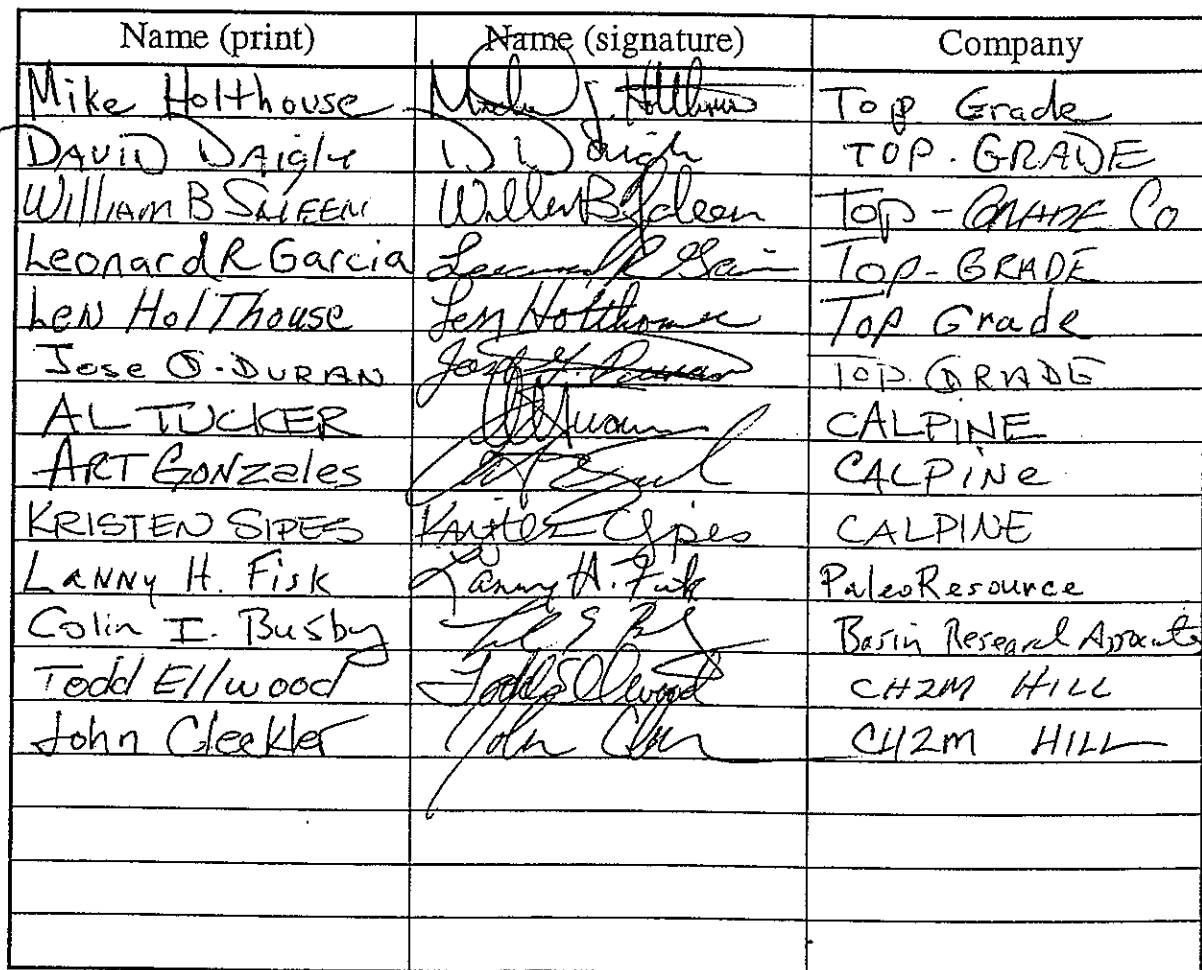 Name (print) Name (signature) Company
Mike Holthouse Top Grade
DAVID DAigle D Daigle TOP-GRADE
William B SAleen William B Saleen Top-GRADE Co
Leonard R Garcia Leonard R Garcia Top-GRADE
Len HolThouse Len Holthouse Top Grade
Jose O. DURAN Duran TOP. GRADE
AL TUCKER CALPINE
ART GONZales CALPINe
KRISTEN SIPES Sipes CALPINE
LANNY H. Fisk Lanny H. Fisk PaleoResource
Colin I. Busby Basin Research Associates
Todd Ellwood Todd Ellwood CH2M HILL
John Cleckler John CH2M HILL